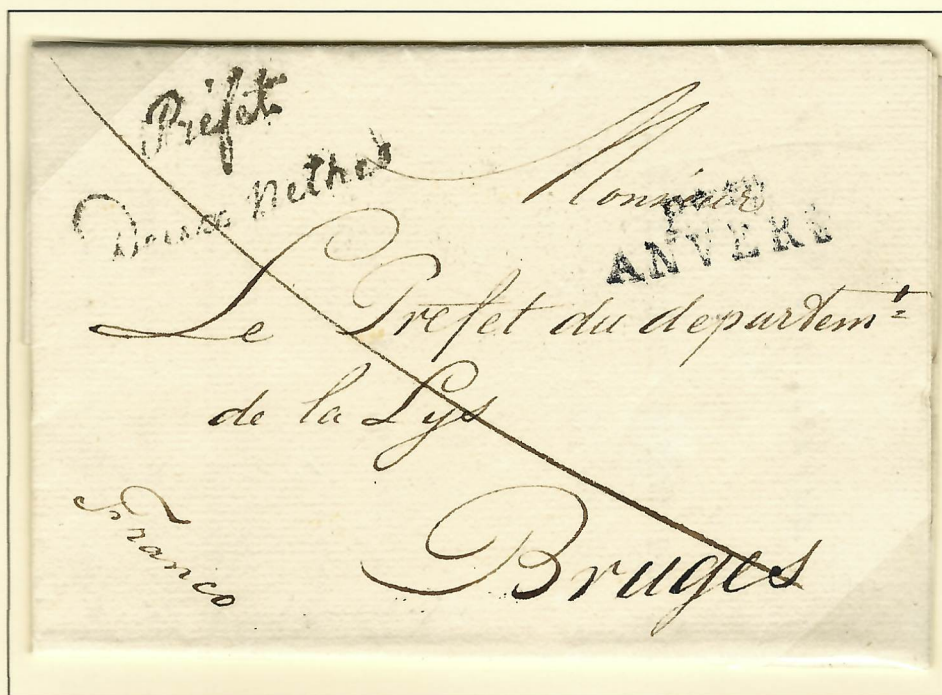 Préfet
Deux Nethes
Monsieur
ANVERS
Le Prefet du departem.t
de la Lys
Franco
Bruges